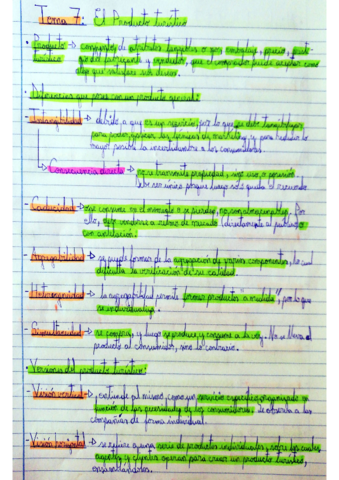 Tema 7: El Producto turístico
· Producto → conjunto de atributos tangibles o no, embalaje, precio, presti-
turístico gio del fabricante y vendedor, que el comprador puede aceptar como
algo que satisface sus deseos.
· Diferencias que posee con un producto general:
- Intangibilidad → debido a que es un servicio, por lo que se debe tangibilizar
para poder aplicar las técnicas de marketing y para reducir lo
mayor posible la incertidumbre a los consumidores.
Consecuencia directa → no se transmite propiedad, sino uso, o posesión
debe ser único porque luego solo queda el recuerdo
- Caducidad → se consume en el momento o se pierde, no son almacenables. Por
ello, debe venderse a ritmo de mercado (directamente al público) o
con antelación.
- Agregabilidad → se puede formar de la agregación de varios componentes, lo cual
dificulta la verificación de su calidad.
- Heterogeneidad → la agregabilidad permite formar productos "a medida", por lo que
se individualiza.
- Simultaneidad → se compra, y luego se produce y consume a la vez. No se lleva el
producto al consumidor, sino lo contrario.
· Versiones del producto turístico:
- Visión vertical → entiende al mismo como un servicio específico organizado en
función de las necesidades de los consumidores. Se observa a las
compañías de forma individual.
- Visión horizontal → se refiere a una serie de productos individuales, sobre los cuales
agentes y clientes operan para crear un producto turístico,
ensamblándolos.